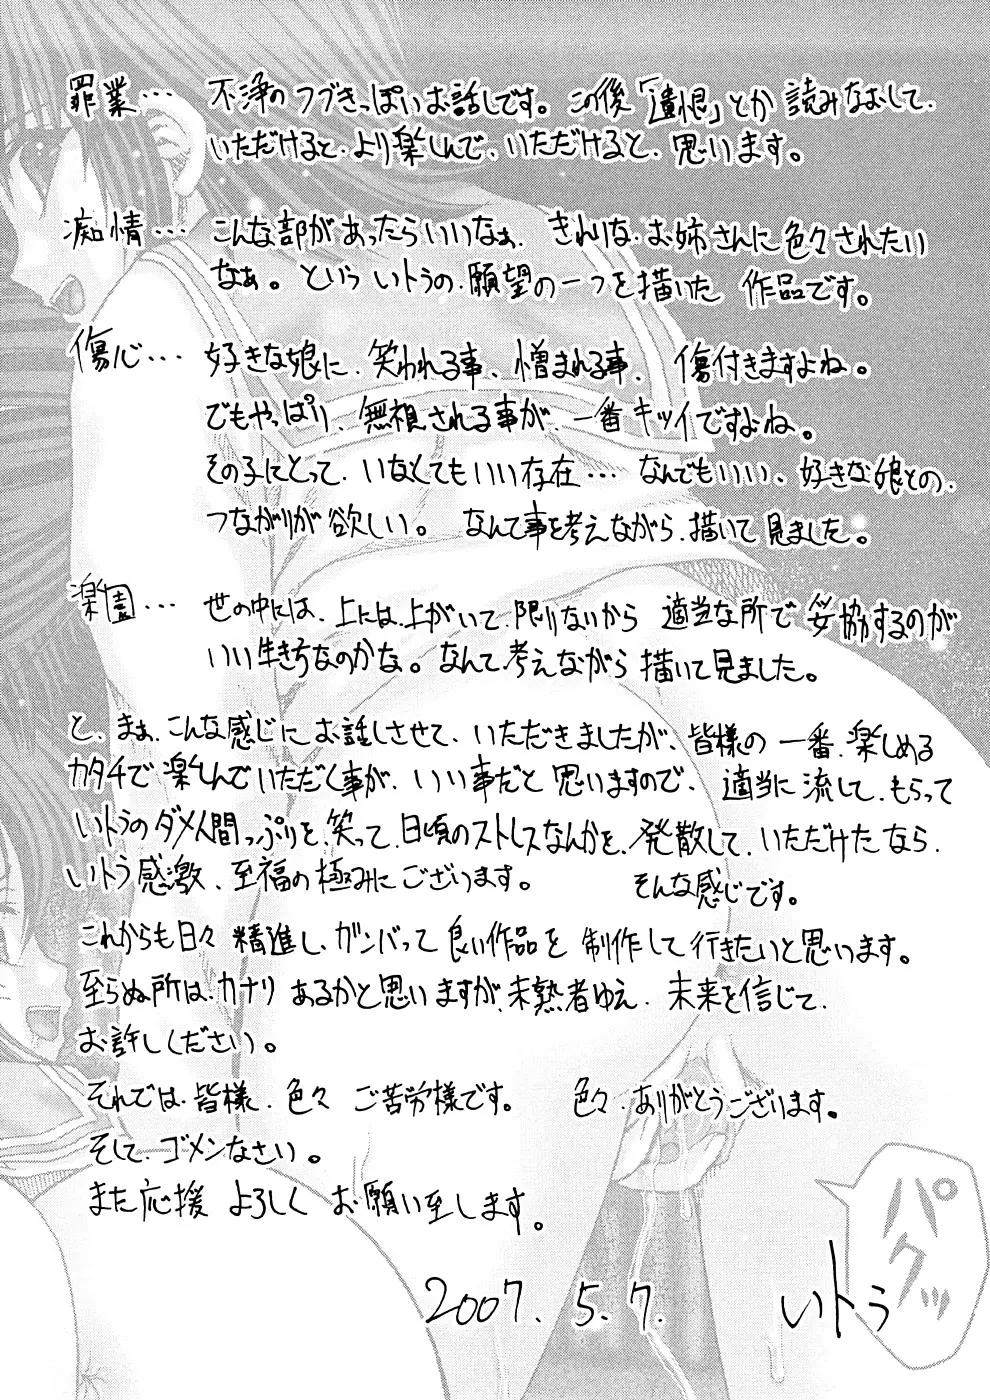 罪業… 不浄のつづきっぽいお話しです。この後「遺恨」とか読みなおして、
いただけると、より楽しんで、いただけると、思います。
痴情… こんな部があったらいいなぁ、きれいなお姉さんに色々されたい
なぁ。といういトうの、願望の一つを描いた作品です。
傷心… 好きな娘に、笑われる事、憎まれる事、傷付きますよね。
でもやっぱり、無視される事が、一番キツイですよね。
その子にとって、いなくてもいい存在…なんでもいい、好きな娘との、
つながりが欲しい。なんて事を考えながら、描いて見ました。
楽園… 世の中には、上には、上がいて、限りないから適当な所で妥協するのが
いい生き方なのかな。なんて考えながら描いて見ました。
と、まぁ、こんな感じにお話しさせて、いただきましたが、皆様の一番、楽しめる
カタチで楽しんでいただく事が、いい事だと思いますので、適当に流して、もらって
いトうのダメ人間っぷりを、笑って、日頃のストレスなんかを、発散して、いただけたなら、
いトう感激、至福の極みにございます。 そんな感じです。
これからも日々精進し、ガンバって良い作品を制作して行きたいと思います。
至らぬ所は、カナリあるかと思いますが、未熟者ゆえ、未来を信じて、
お許しください。
それでは、皆様、色々ご苦労様です。 色々、ありがとうございます。
そして、ゴメンなさい。
また応援よろしくお願い至します。
2007. 5. 7. いトう
パクッ